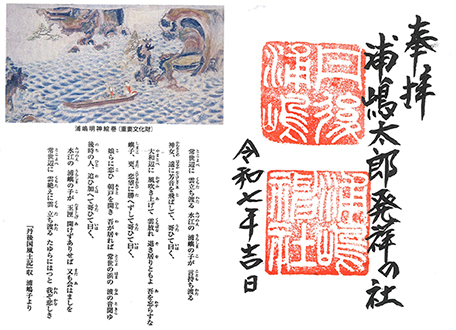 奉拝
浦嶋太郎発祥の社
令和七年吉日
丹後
浦嶋
浦嶋
神社
浦嶋明神絵巻(重要文化財)
常世辺に 雲立ち渡る 水江の 浦嶋の子が 言持ち渡る
神女、遥に芳音を飛ばして、哥ひて曰く、
大和辺に 風吹き上げて 雲放れ 退き居りともよ 吾を忘らすな
嶼子、更、恋望に勝へずして哥ひて曰く、
娘らに恋ひ 朝戸を開き 吾が居れば 常世の浜の 波の音聞ゆ
後時の人、追ひ加へて哥ひて曰く、
水江の 浦嶋の子が 玉匣 開けずありせば 又も会はましを
常世辺に 雲絶えに雲 立ち渡る たゆらにはつと 我ぞ悲しき
『丹後国風土記』収 浦嶋子より